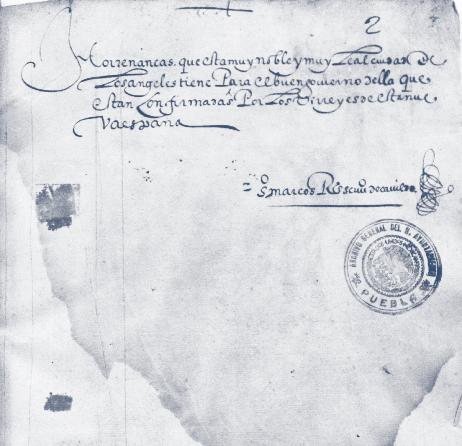 2
Hordenanças que esta muy noble y muy Leal ciudad de
Los angeles tiene Para el buen gouierno della que
estan Confirmadas Por Los Virreyes de esta nue
Va españa
Marcos Rs
ARCHIVO GENERAL DEL H. AYUNTAMIENTO
PUEBLA